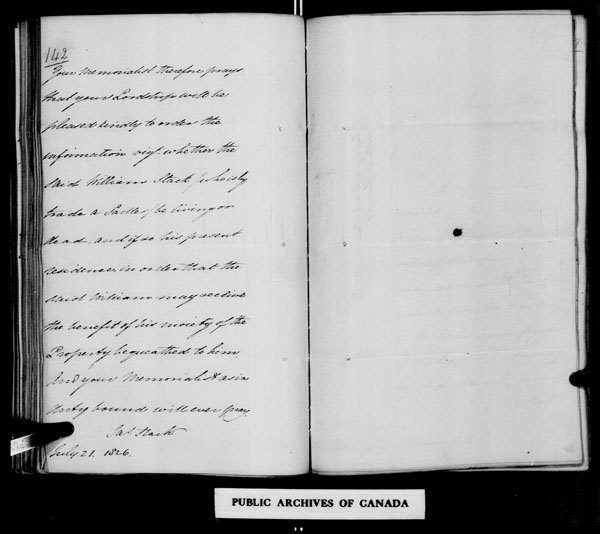 142
Your Memorialist therefore prays
that your Lordships will be
pleased kindly to order the
information viz. whether the
said William Stack (who is by
trade a Sadler) be living or
dead, and if so his present
residence, in order that the
said William may receive
the benefit of his moiety of the
Property bequeathed to him
And your Memorialist as in
duty bound will ever pray
Jas Stack
July 21. 1826.
PUBLIC ARCHIVES OF CANADA